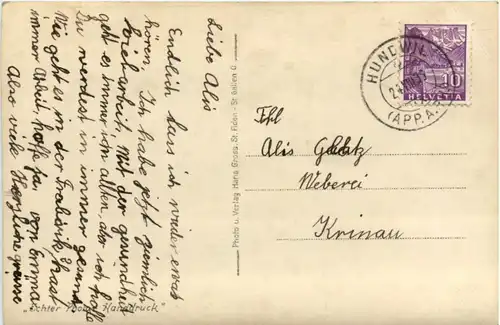 Liebe Alis
Endlich lass ich wieder etwas
hören. Ich habe jetzt ziemlich
viel arbeit. Mit der gesundheit
geht es immer ich alten, aber ich hoffe
Du werdest in immer gesund.
Wie geht es in der Fabrik? hast
immer Arbeit hoffe ja, von Emma
Also viele Herzliche grüsse
"Echter Handdruck"
Photo u. Verlag Hans Gross, St. Fiden - St. Gallen O
HUNDWIL
(APP. A.
10
HELVETIA
Frl
Alis Glatz
Weberei
Krinau